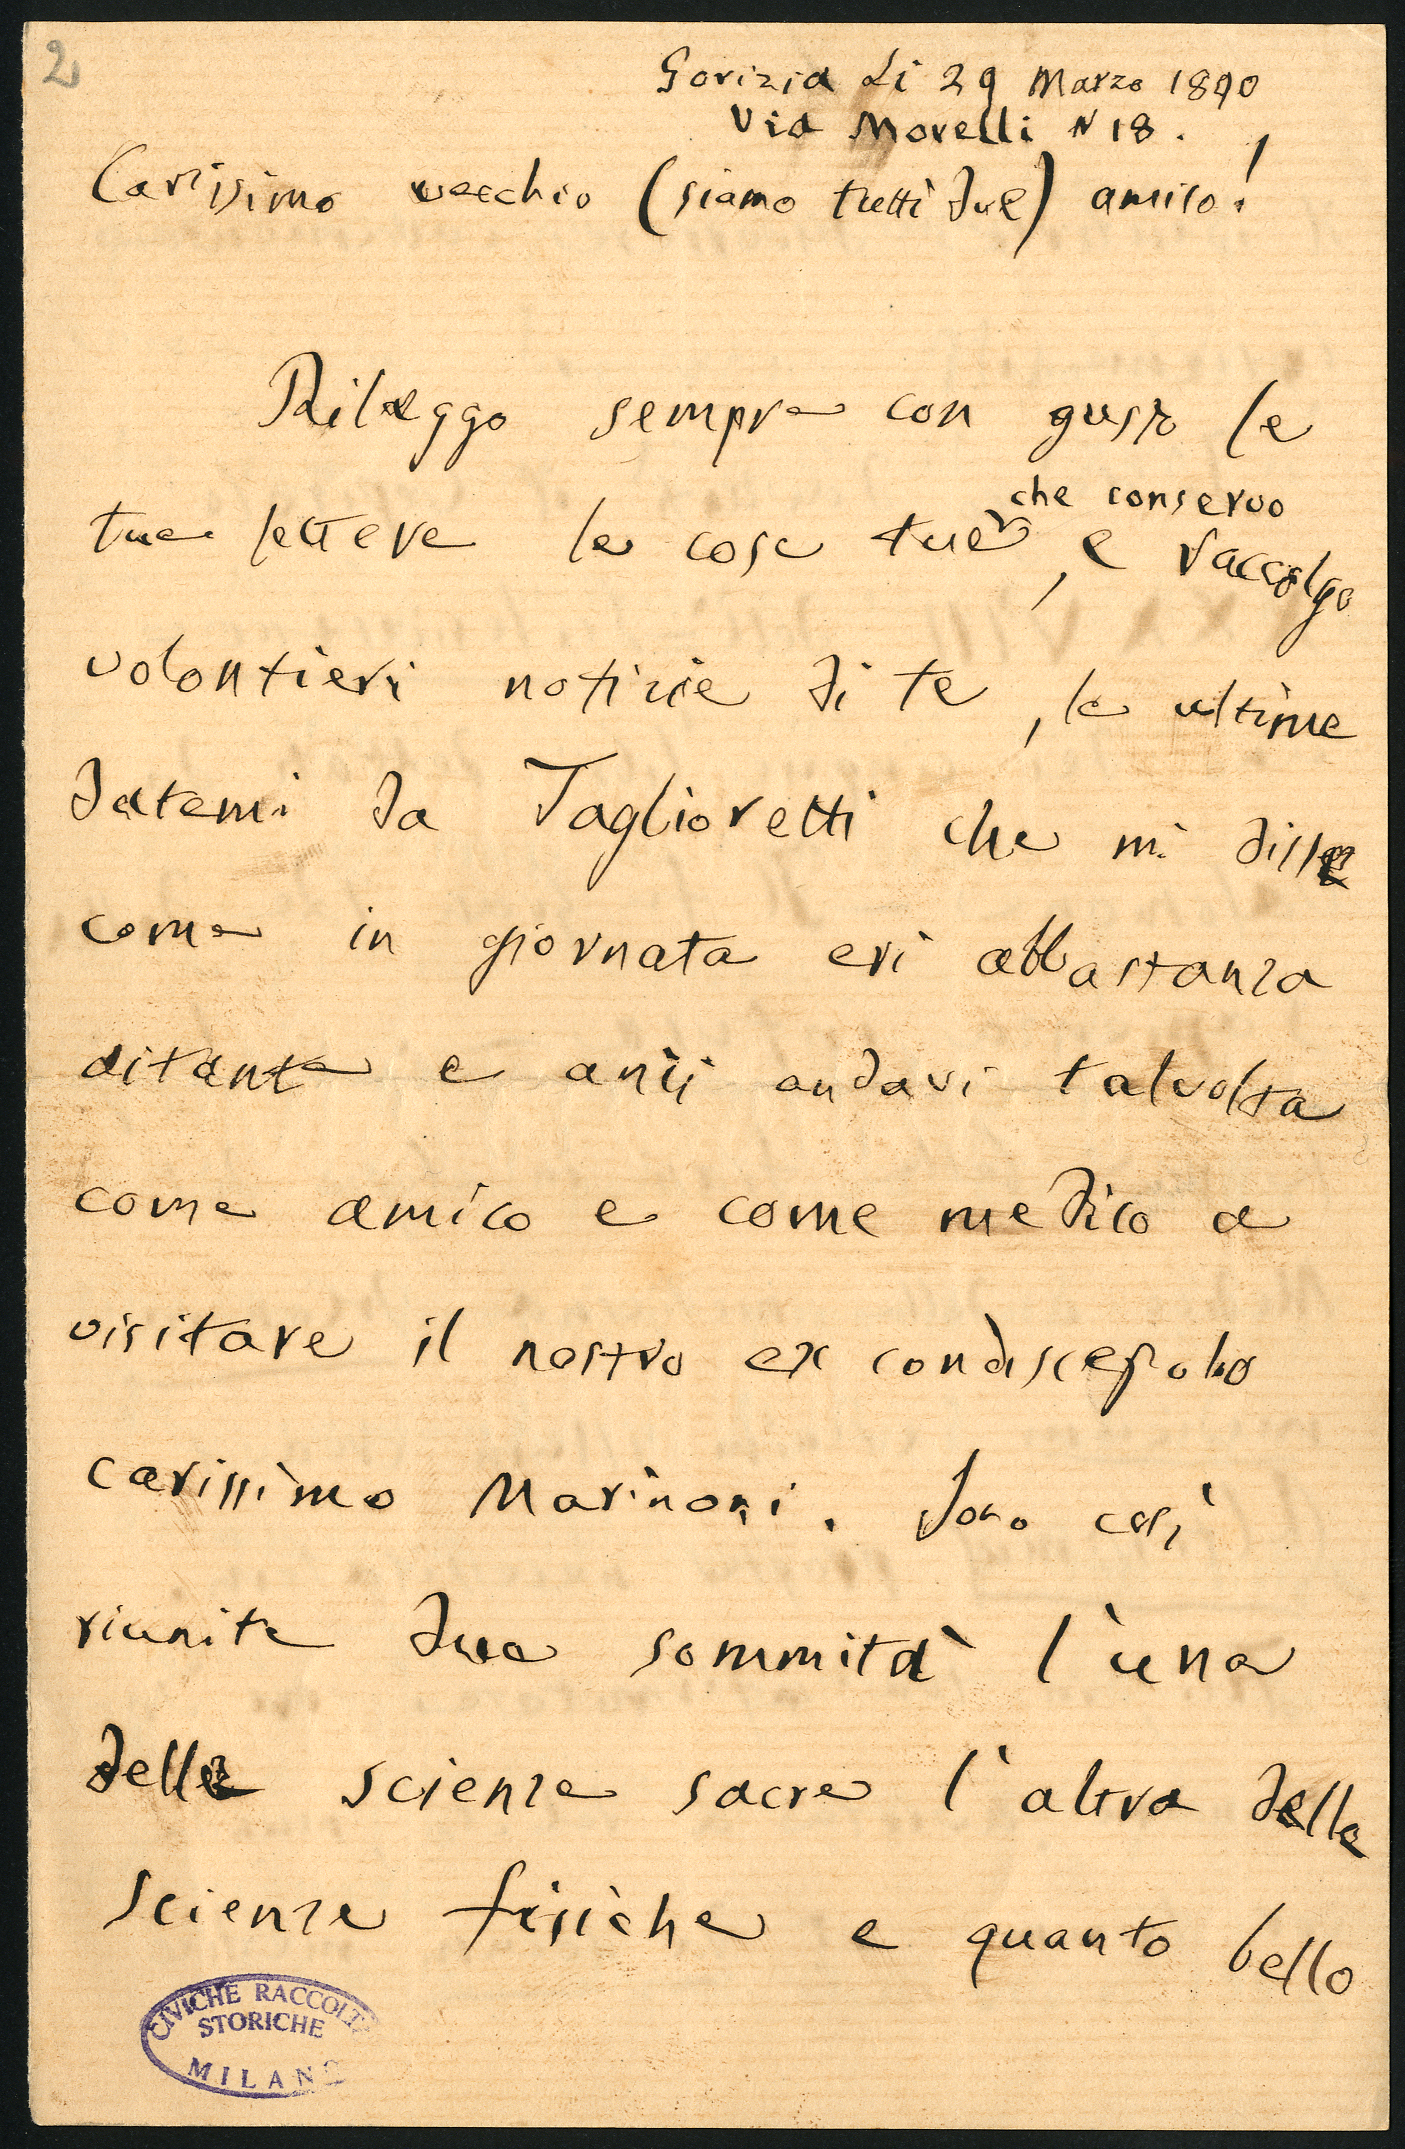 2
Gorizia li 29 Marzo 1890
Via Morelli N 18.
Carissimo vecchio (siamo tutti due) amico!
Rileggo sempre con gusto le
che conservo
tue lettere le cose tue, e raccolgo
volontieri notizie di te, le ultime
datemi da Taglioretti che mi disse
come in giornata eri abbastanza
aitante e anzi andavi talvolta
come amico e come medico a
visitare il nostro ex condiscepolo
carissimo Marinoni. Sono così
riunite due sommità l'una
delle scienze sacre l'altra delle
scienze fisiche e quanto bello
CIVICHE RACCOLTE
STORICHE
MILANO